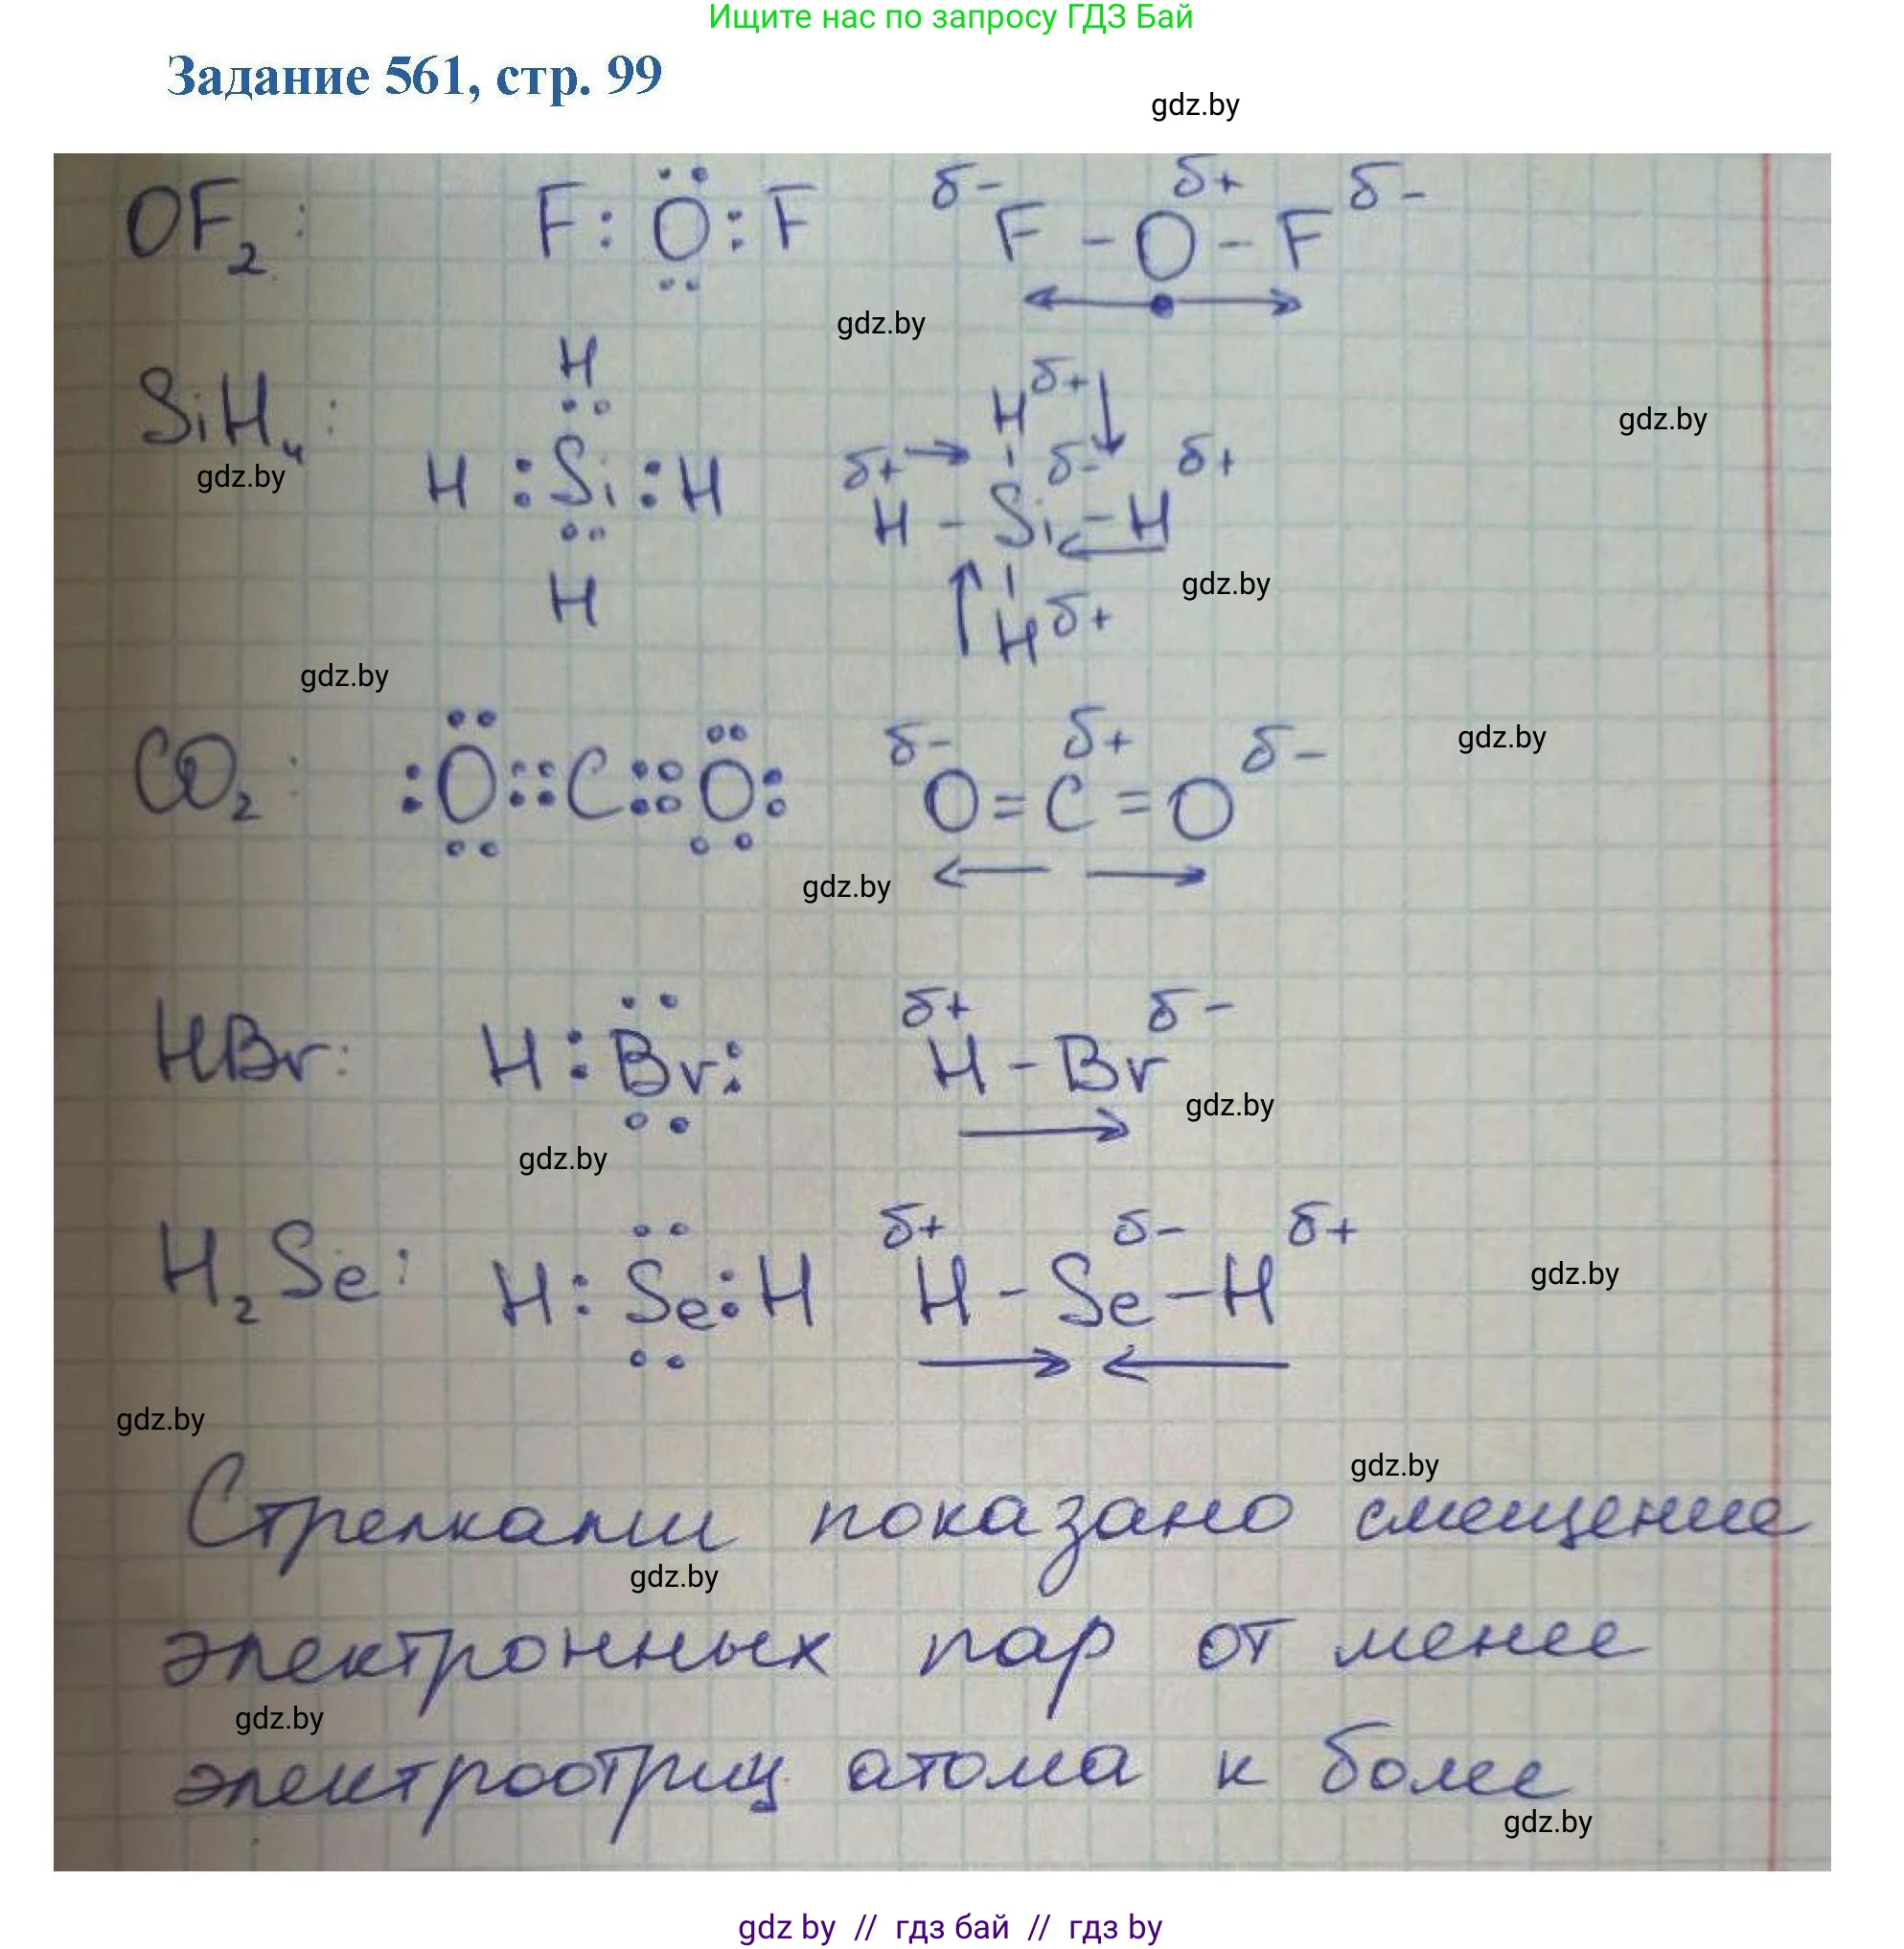 Ищите нас по запросу ГДЗ Бай
Задание 561, стр. 99
gdz.by
OF₂: F : O : F δ- F - O δ+ - F δ-
gdz.by
SiH₄:
H
H : Si : H
H
H δ+
gdz.by
δ+ δ- δ+
H - Si - H
H δ+
gdz.by
gdz.by
gdz.by
CO₂: :O::C::O: δ- δ+ δ-
O = C = O
gdz.by
gdz.by
HBr: H : Br : δ+ δ-
H - Br
gdz.by
gdz.by
H₂Se: H : Se : H δ+ δ- δ+
H - Se - H
gdz.by
gdz.by
gdz.by
Стрелками показано смещение
gdz.by
электронных пар от менее
gdz.by
электроотриц. атома к более
gdz.by
gdz by // гдз бай // гдз by